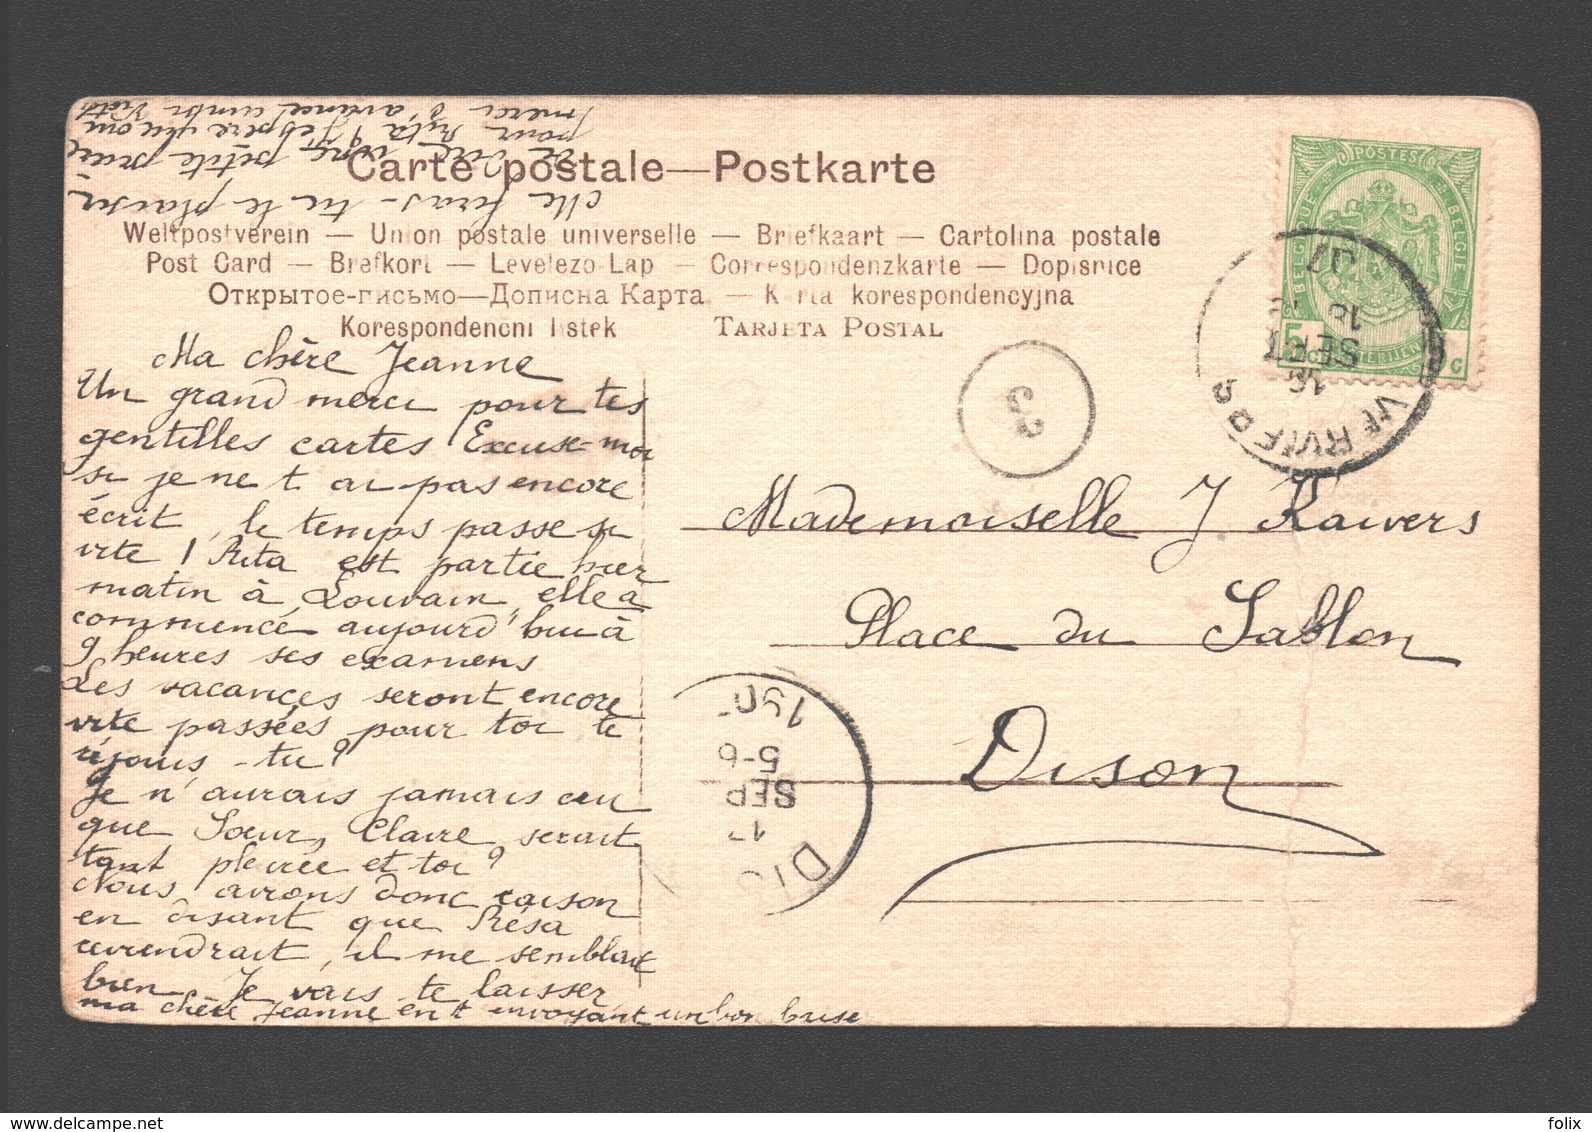 Carte postale—Postkarte
Weltpostverein — Union postale universelle — Briefkaart — Cartolina postale
Post Card — Brefkort — Levelezo Lap — Correspondenzkarte — Dopisnice
Открытое-письмо—Дописна Карта — Karta korespondencyjna
Korespondencni listek TARJETA POSTAL
Ma chère Jeanne
Un grand merci pour tes
gentilles cartes Excuse-moi
si je ne t'ai pas encore
écrit, le temps passe si
vite ! Rita est partie hier
matin à Louvain, elle a
commencé aujourd'hui à
9 heures ses examens
Les vacances seront encore
vite passées pour toi te
réjouis-tu ?
Je n'aurais jamais cru
que Sœur Claire, serait
tant pleurée et toi ?
Nous avions donc raison
en disant que Résa
reviendrait, il me semblait
bien. Je vais te laisser
ma chère Jeanne en t'envoyant un bon baiser
Me feras-tu le plaisir
de dire une petite prière
pour Rita ? J'espère
merci d'avance
Mademoiselle J Kaivers
Place du Sablon
Dison
POSTES
BELGIQUE
BELGIË
5c
c
VERVIERS
16
SEPT
18
07
3
DIS
17
SEP
5-6
190
folix